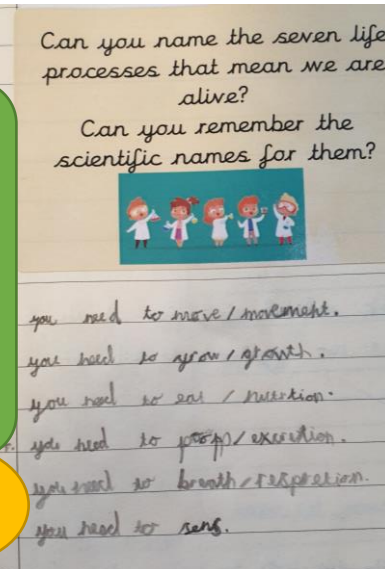 Can you name the seven life
processes that mean we are
alive?
Can you remember the
scientific names for them?
you need to move / movement.
you need to grow / growth.
you need to eat / nutrition.
you need to poop / excretion.
you need to breath / respretion.
you need to sens.